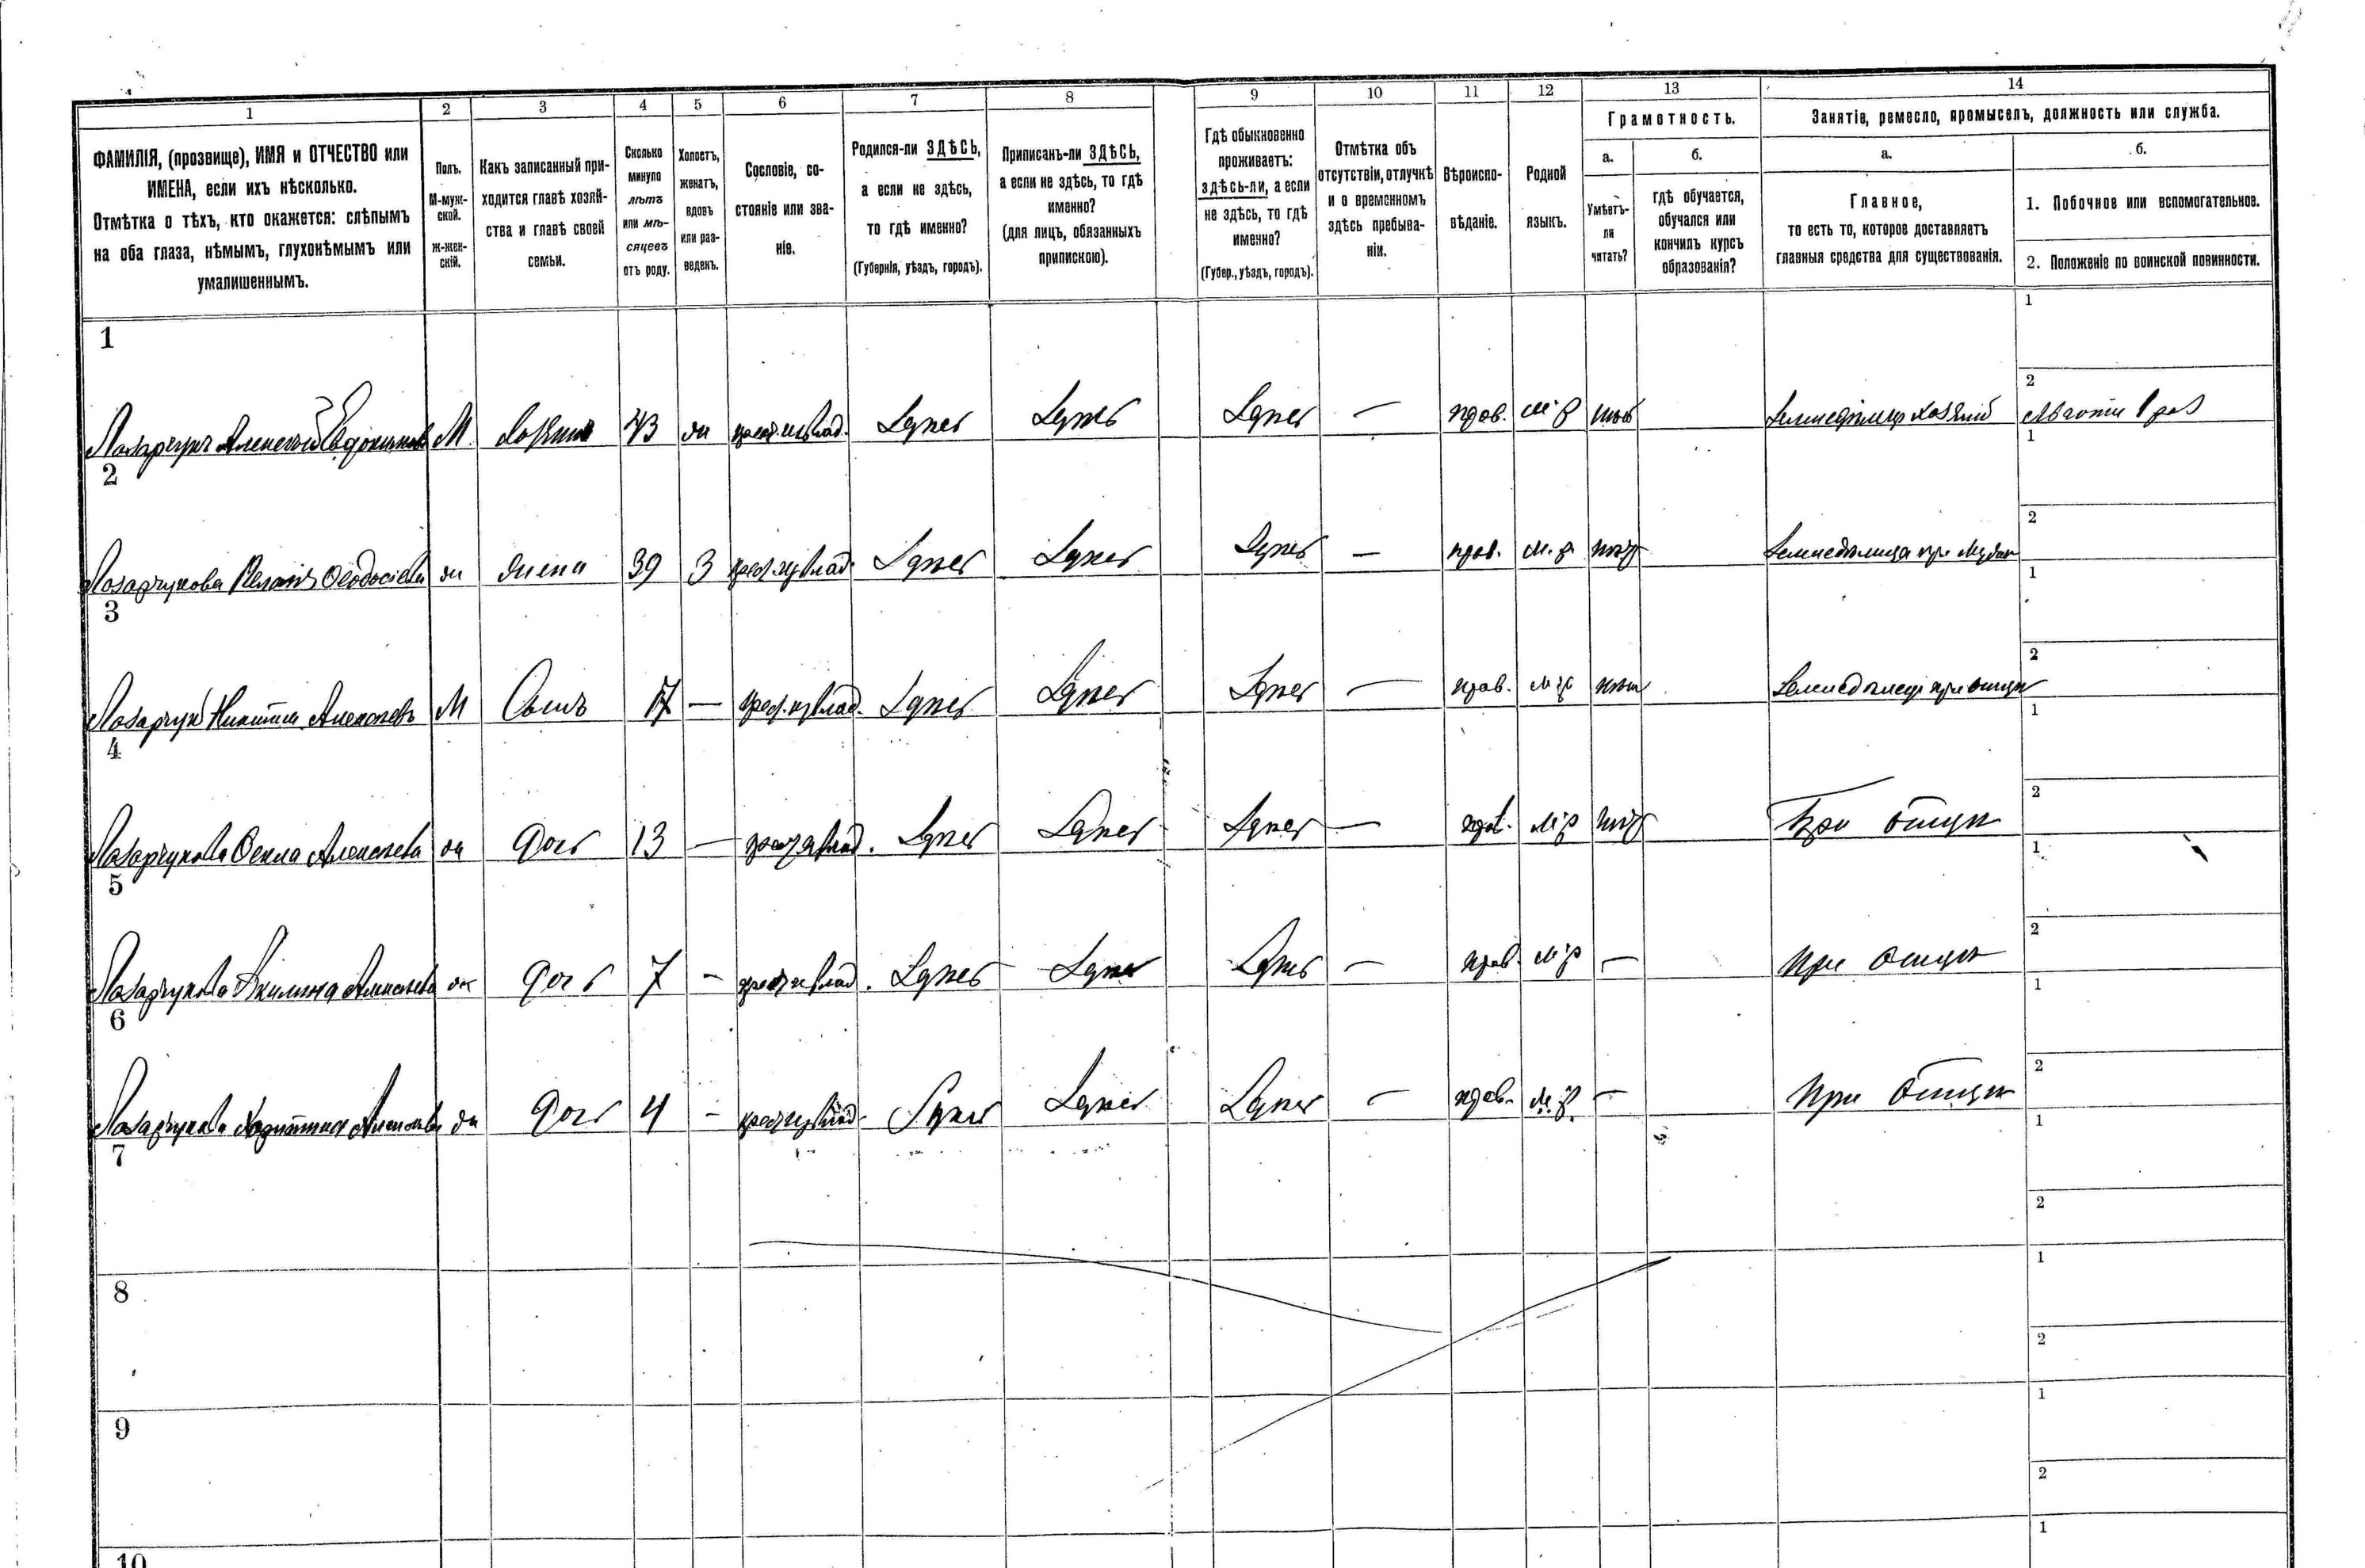 1 2 3 4 5 6 7 8 9 10 11 12 13 14
ФАМИЛІЯ, (прозвище), ИМЯ и ОТЧЕСТВО или
ИМЕНА, если ихъ нѣсколько.
Отмѣтка о тѣхъ, кто окажется: слѣпымъ
на оба глаза, нѣмымъ, глухонѣмымъ или
умалишеннымъ.
Полъ.
М-муж-
ской.
ж-жен-
скій.
Какъ записанный при-
ходится главѣ хозяй-
ства и главѣ своей
семьи.
Сколько
минуло
лѣтъ
или мѣ-
сяцевъ
отъ роду.
Холостъ,
женатъ,
вдовъ
или раз-
веденъ.
Сословіе, со-
стояніе или зва-
ніе.
Родился-ли ЗДѢСЬ,
а если не здѣсь,
то гдѣ именно?
(Губернія, уѣздъ, городъ).
Приписанъ-ли ЗДѢСЬ,
а если не здѣсь, то гдѣ
именно?
(для лицъ, обязанныхъ
припискою).
Гдѣ обыкновенно
проживаетъ:
здѣсь-ли, а если
не здѣсь, то гдѣ
именно?
(Губер., уѣздъ, городъ).
Отмѣтка объ
отсутствіи, отлучкѣ
и о временномъ
здѣсь пребыва-
ніи.
Вѣроиспо-
вѣданіе.
Родной
языкъ.
Грамотность.
а.
Умѣетъ-
ли
читать?
б.
гдѣ обучается,
обучался или
кончилъ курсъ
образованія?
Занятіе, ремесло, промыселъ, должность или служба.
а.
Главное,
то есть то, которое доставляетъ
главныя средства для существованія.
б.
1. Побочное или вспомогательное.
2. Положеніе по воинской повинности.
1 1
2
Лазарчукъ Алексѣй Евдокимовъ М Хозяинъ 43 ж Здѣсь Здѣсь Здѣсь — прав. м.р. нѣтъ Земледѣлецъ хозяинъ
2 1
2
Лазарчукова Θеодосіева ж жена 39 З Здѣсь Здѣсь Здѣсь — прав. м.р. нѣтъ Земледѣлица при мужѣ
3 1
2
Лазарчукъ Никита Алексѣевъ М Сынъ 17 — Здѣсь Здѣсь Здѣсь — прав. м.р. нѣтъ Земледѣлецъ при отцѣ
4 1
2
Лазарчукова Θекла Алексѣева ж дочь 13 — Здѣсь Здѣсь Здѣсь — прав. м.р. нѣтъ При отцѣ
5 1
2
Лазарчукова Акилина Алексѣева ж дочь 7 — Здѣсь Здѣсь Здѣсь — прав. м.р. — при отцѣ
6 1
2
Лазарчукова Харитина Алексѣева ж дочь 4 — Здѣсь Здѣсь Здѣсь — прав. м.р. — при отцѣ
7 1
2
8 1
2
9 1
2
10 1